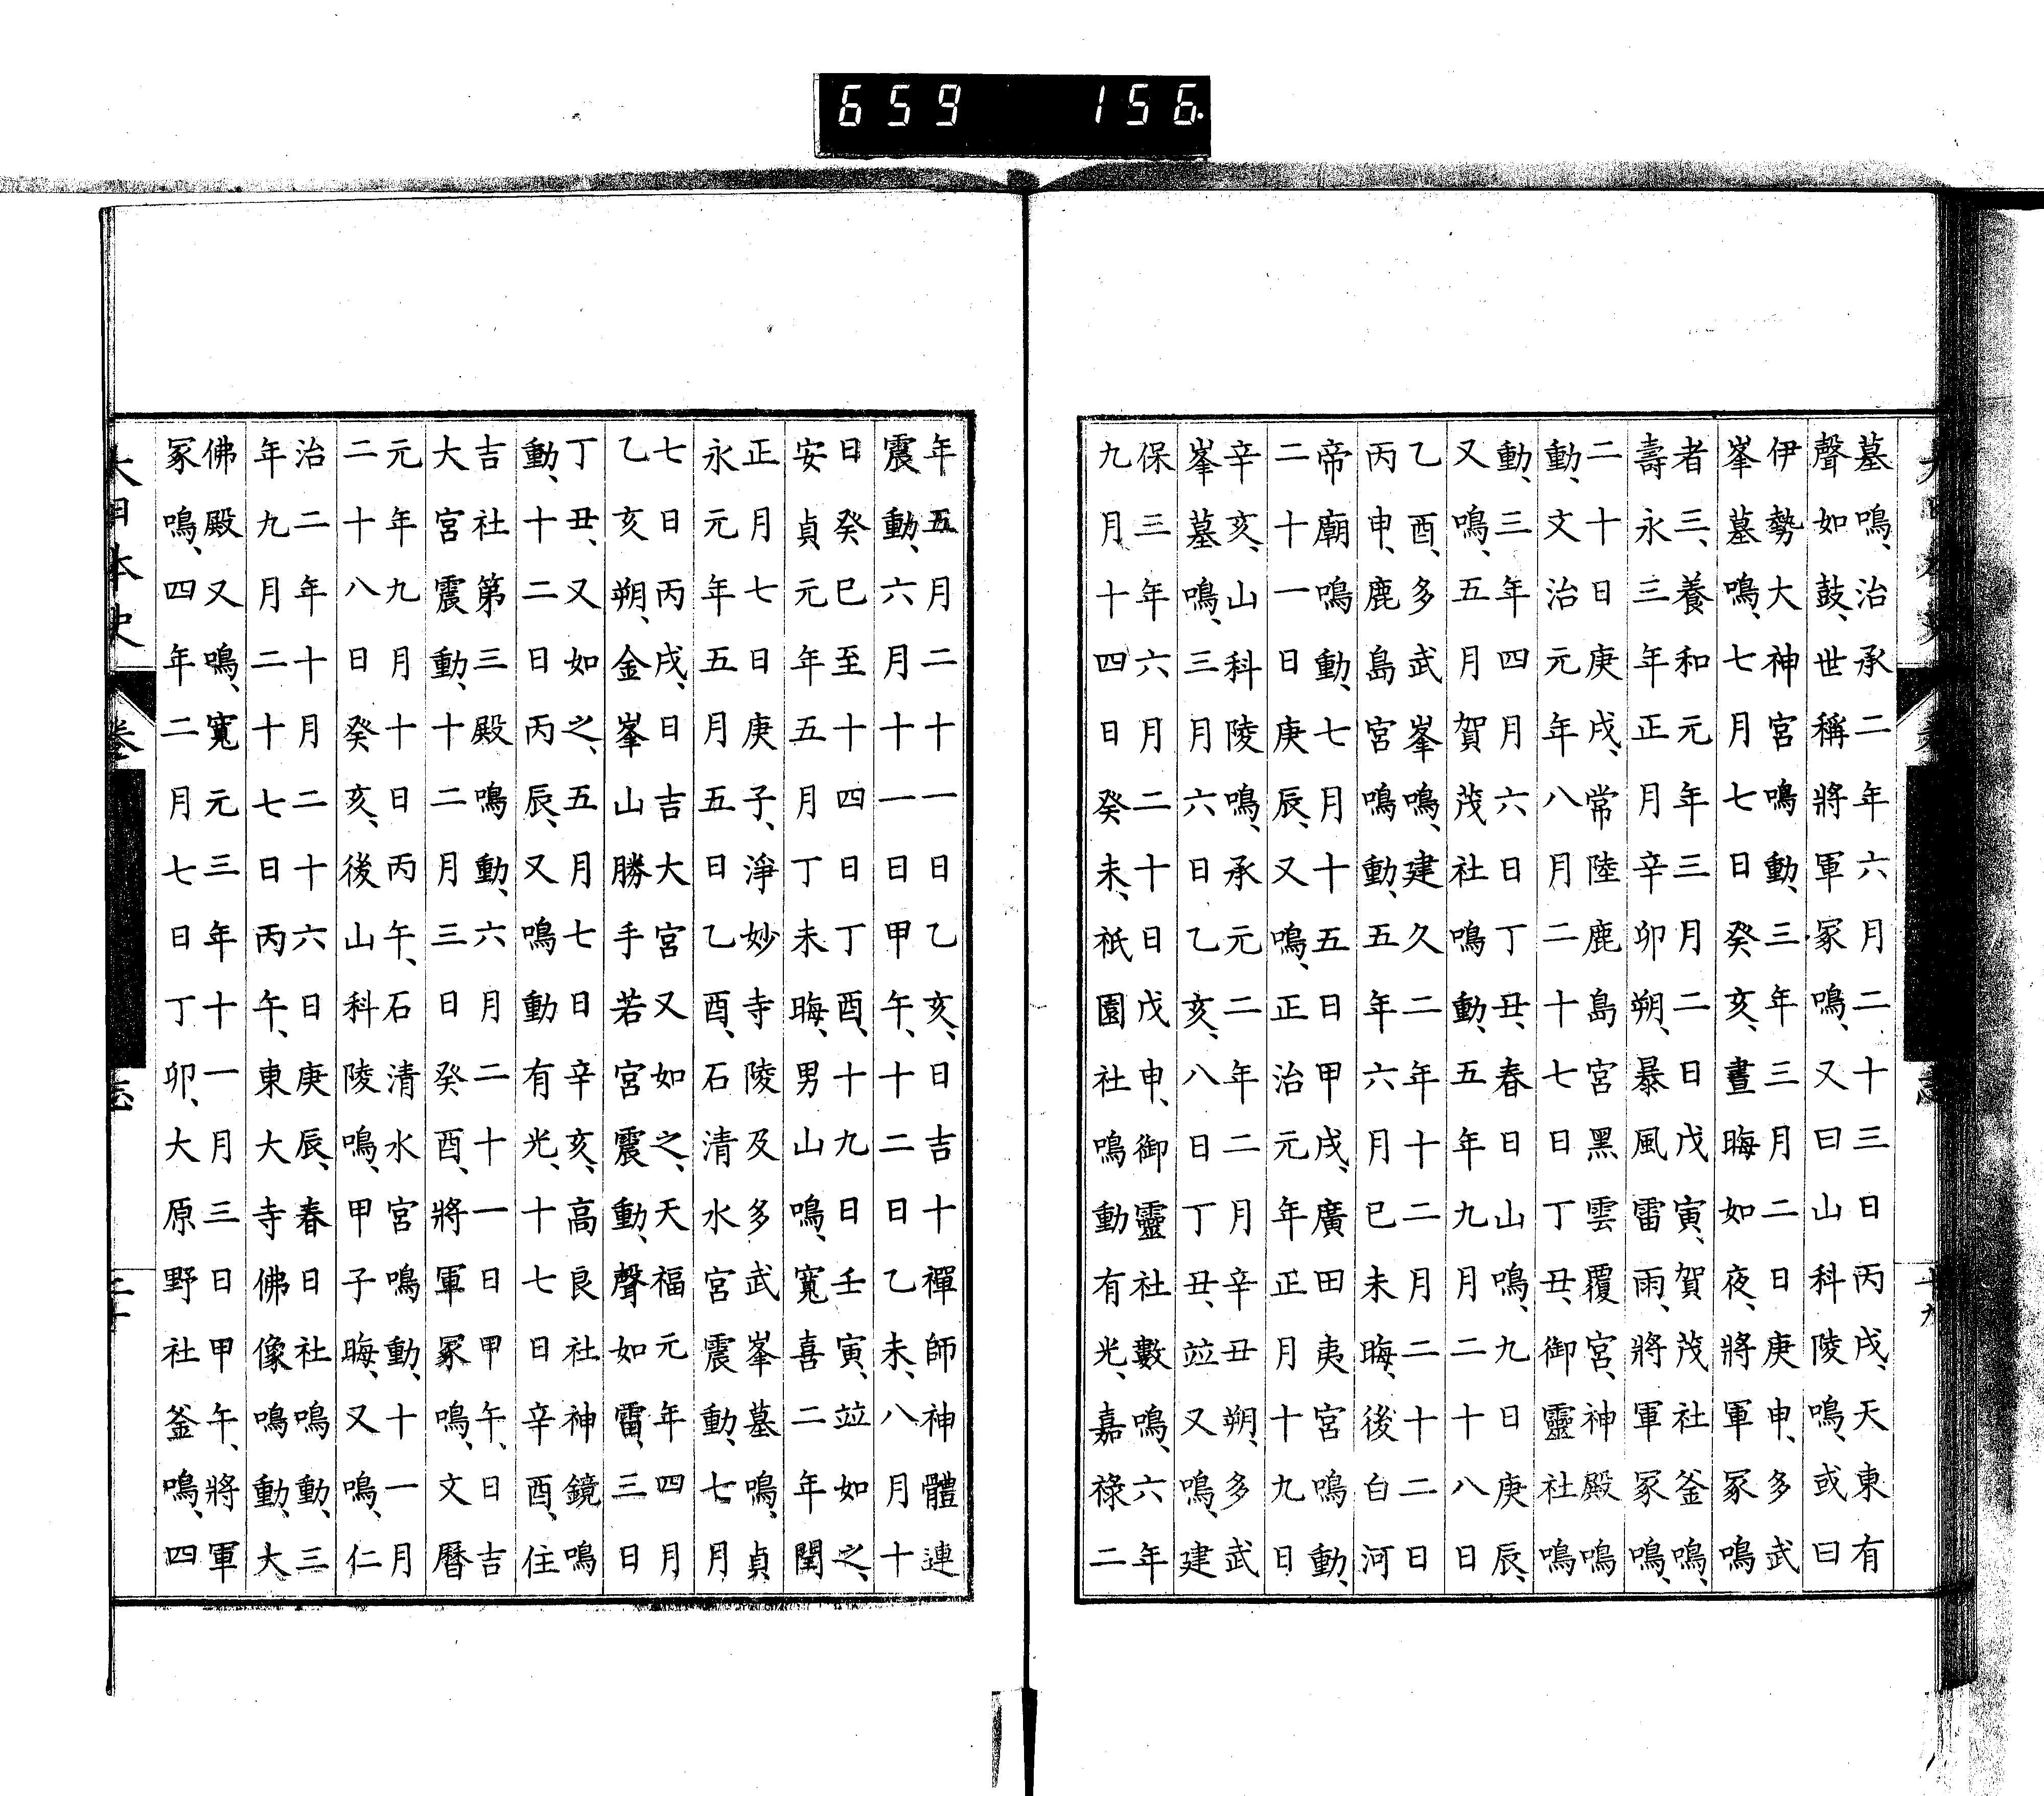 659 156
墓鳴、治承二年六月二十三日丙戌、天東有
聲如鼓、世稱將軍冢鳴、又曰山科陵鳴、或曰
伊勢大神宮鳴動、三年三月二日庚申、多武
峯墓鳴、七月七日癸亥、晝晦如夜、將軍冢鳴
者三、養和元年三月二日戊寅、賀茂社釜鳴、
壽永三年正月辛卯朔、暴風雷雨、將軍冢鳴、
二十日庚戌、常陸鹿島宮黑雲覆宮、神殿鳴
動、文治元年八月二十七日丁丑、御靈社鳴
動、三年四月六日丁丑、春日山鳴、九日庚辰、
又鳴、五月賀茂社鳴動、五年九月二十八日
乙酉、多武峯鳴、建久二年十二月二十二日
丙申、鹿島宮鳴動、五年六月己未晦、後白河
帝廟鳴動、七月十五日甲戌、廣田夷宮鳴動、
二十一日庚辰、又鳴、正治元年正月十九日
辛亥、山科陵鳴、承元二年二月辛丑朔、多武
峯墓鳴、三月六日乙亥、八日丁丑、竝又鳴、建
保三年六月二十日戊申、御靈社數鳴、六年
九月十四日癸未、祇園社鳴動有光、嘉祿二
年五月二十一日乙亥、日吉十禪師神體連
震動、六月十一日甲午、十二日乙未、八月十
日癸巳至十四日丁酉、十九日壬寅、竝如之、
安貞元年五月丁未晦、男山鳴、寬喜二年閏
正月七日庚子、淨妙寺陵及多武峯墓鳴、貞
永元年五月五日乙酉、石清水宮震動、七月
七日丙戌、日吉大宮又如之、天福元年四月
乙亥朔、金峯山勝手若宮震動、聲如雷、三日
丁丑、又如之、五月七日辛亥、高良社神鏡鳴
動、十二日丙辰、又鳴動有光、十七日辛酉、住
吉社第三殿鳴動、六月二十一日甲午、日吉
大宮震動、十二月三日癸酉、將軍冢鳴、文曆
元年九月十日丙午、石清水宮鳴動、十一月
二十八日癸亥、後山科陵鳴、甲子晦、又鳴、仁
治二年十月二十六日庚辰、春日社鳴動、三
年九月二十七日丙午、東大寺佛像鳴動、大
佛殿又鳴、寬元三年十一月三日甲午、將軍
冢鳴、四年二月七日丁卯、大原野社釜鳴、四
大日本史 卷 志 二十